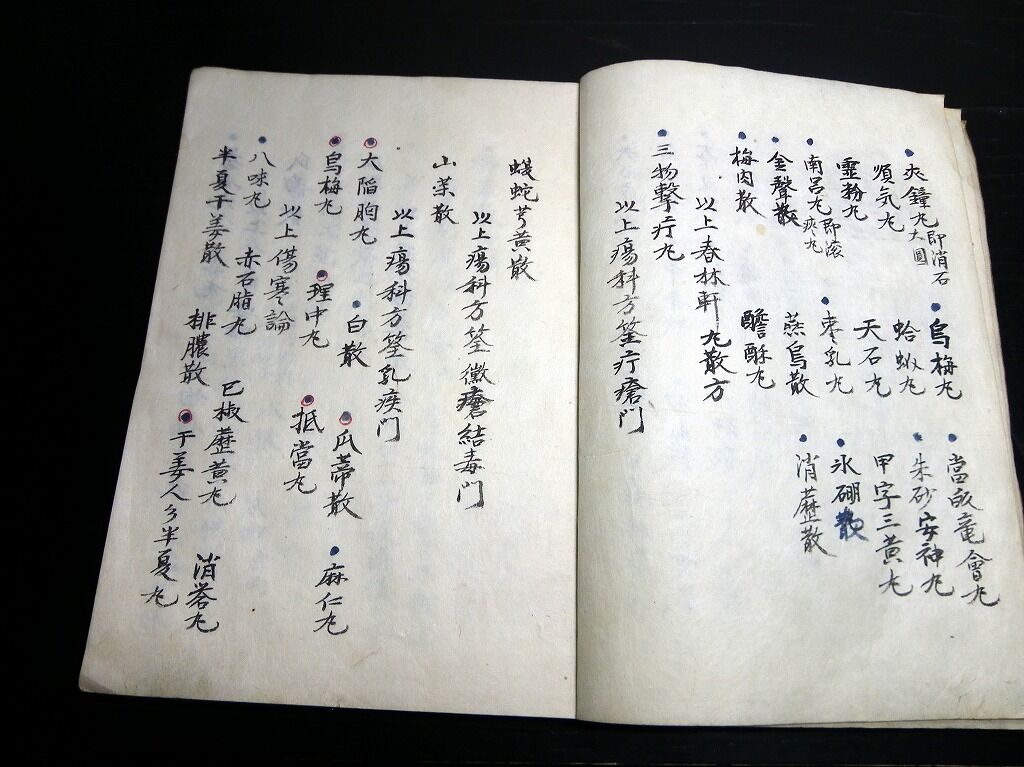 夾鐘丸即消石大圓 烏梅丸 當皈竜會丸
順気丸 蛤蚧丸 朱砂安神丸
霊粉丸 天石丸 甲字三黄丸
南呂丸即滚痰丸 棗乳丸 氷硼散
金聲散 燕烏散 消蘑散
梅肉散 蟾酥丸
以上春林軒丸散方
三物撃疔丸
以上瘍科方筌疔瘡门
蝮蛇芎黄散
以上瘍科方筌黴瘡結毒门
山茱散
以上瘍科方筌乳疾门
大陥胸丸 白散 瓜蒂散 麻仁丸
烏梅丸 理中丸 抵當丸
以上傷寒論
八味丸 赤石脂丸 巴椒蘑黄丸 消礬丸
半夏干姜散 排膿散 干姜人参半夏丸